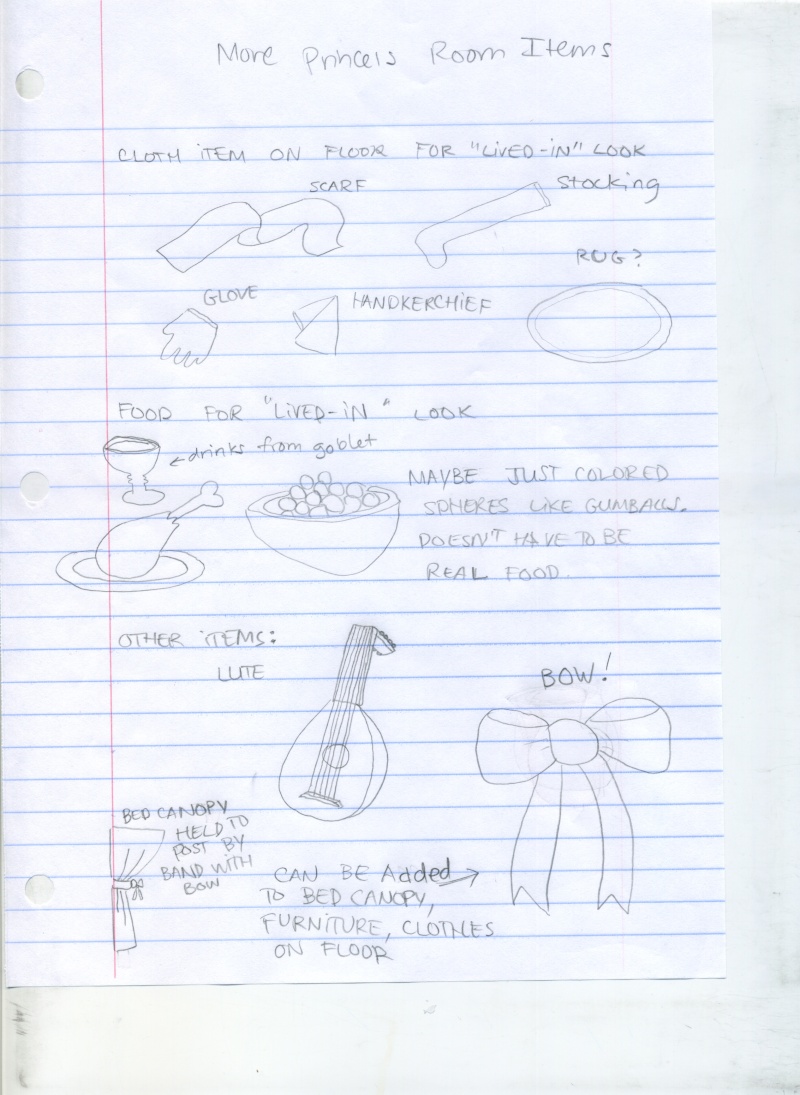 More Princess Room Items
CLOTH ITEM ON FLOOR FOR "LIVED-IN" LOOK
SCARF
Stocking
RUG?
GLOVE
HANDKERCHIEF
FOOD FOR "LIVED-IN" LOOK
←drinks from goblet
MAYBE JUST COLORED
SPHERES LIKE GUMBALLS.
DOESN'T HAVE TO BE
REAL FOOD.
OTHER ITEMS:
LUTE
BOW!
BED CANOPY
HELD TO
POST BY
BAND WITH
BOW
CAN BE Added →
TO BED CANOPY,
FURNITURE, CLOTHES
ON FLOOR